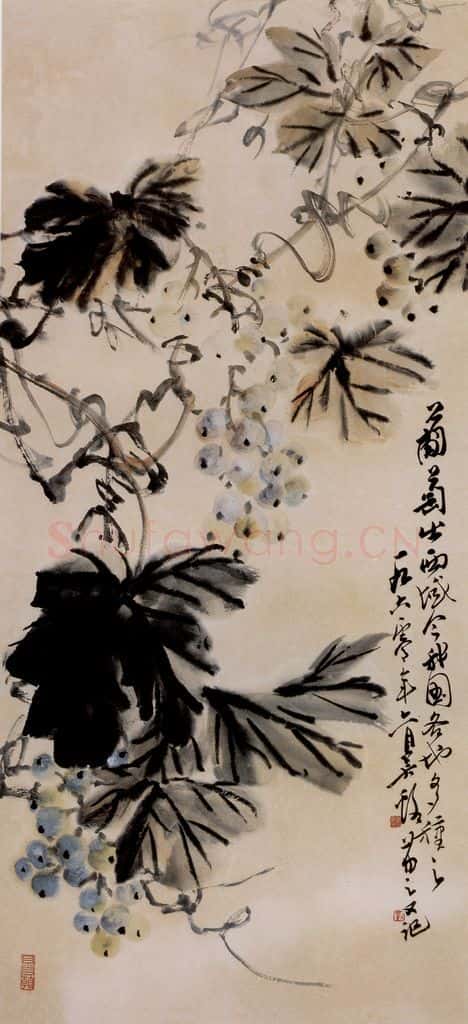 葡萄出西域今我国各地多種之
一九六零年六月
又记
Shufawang.CN